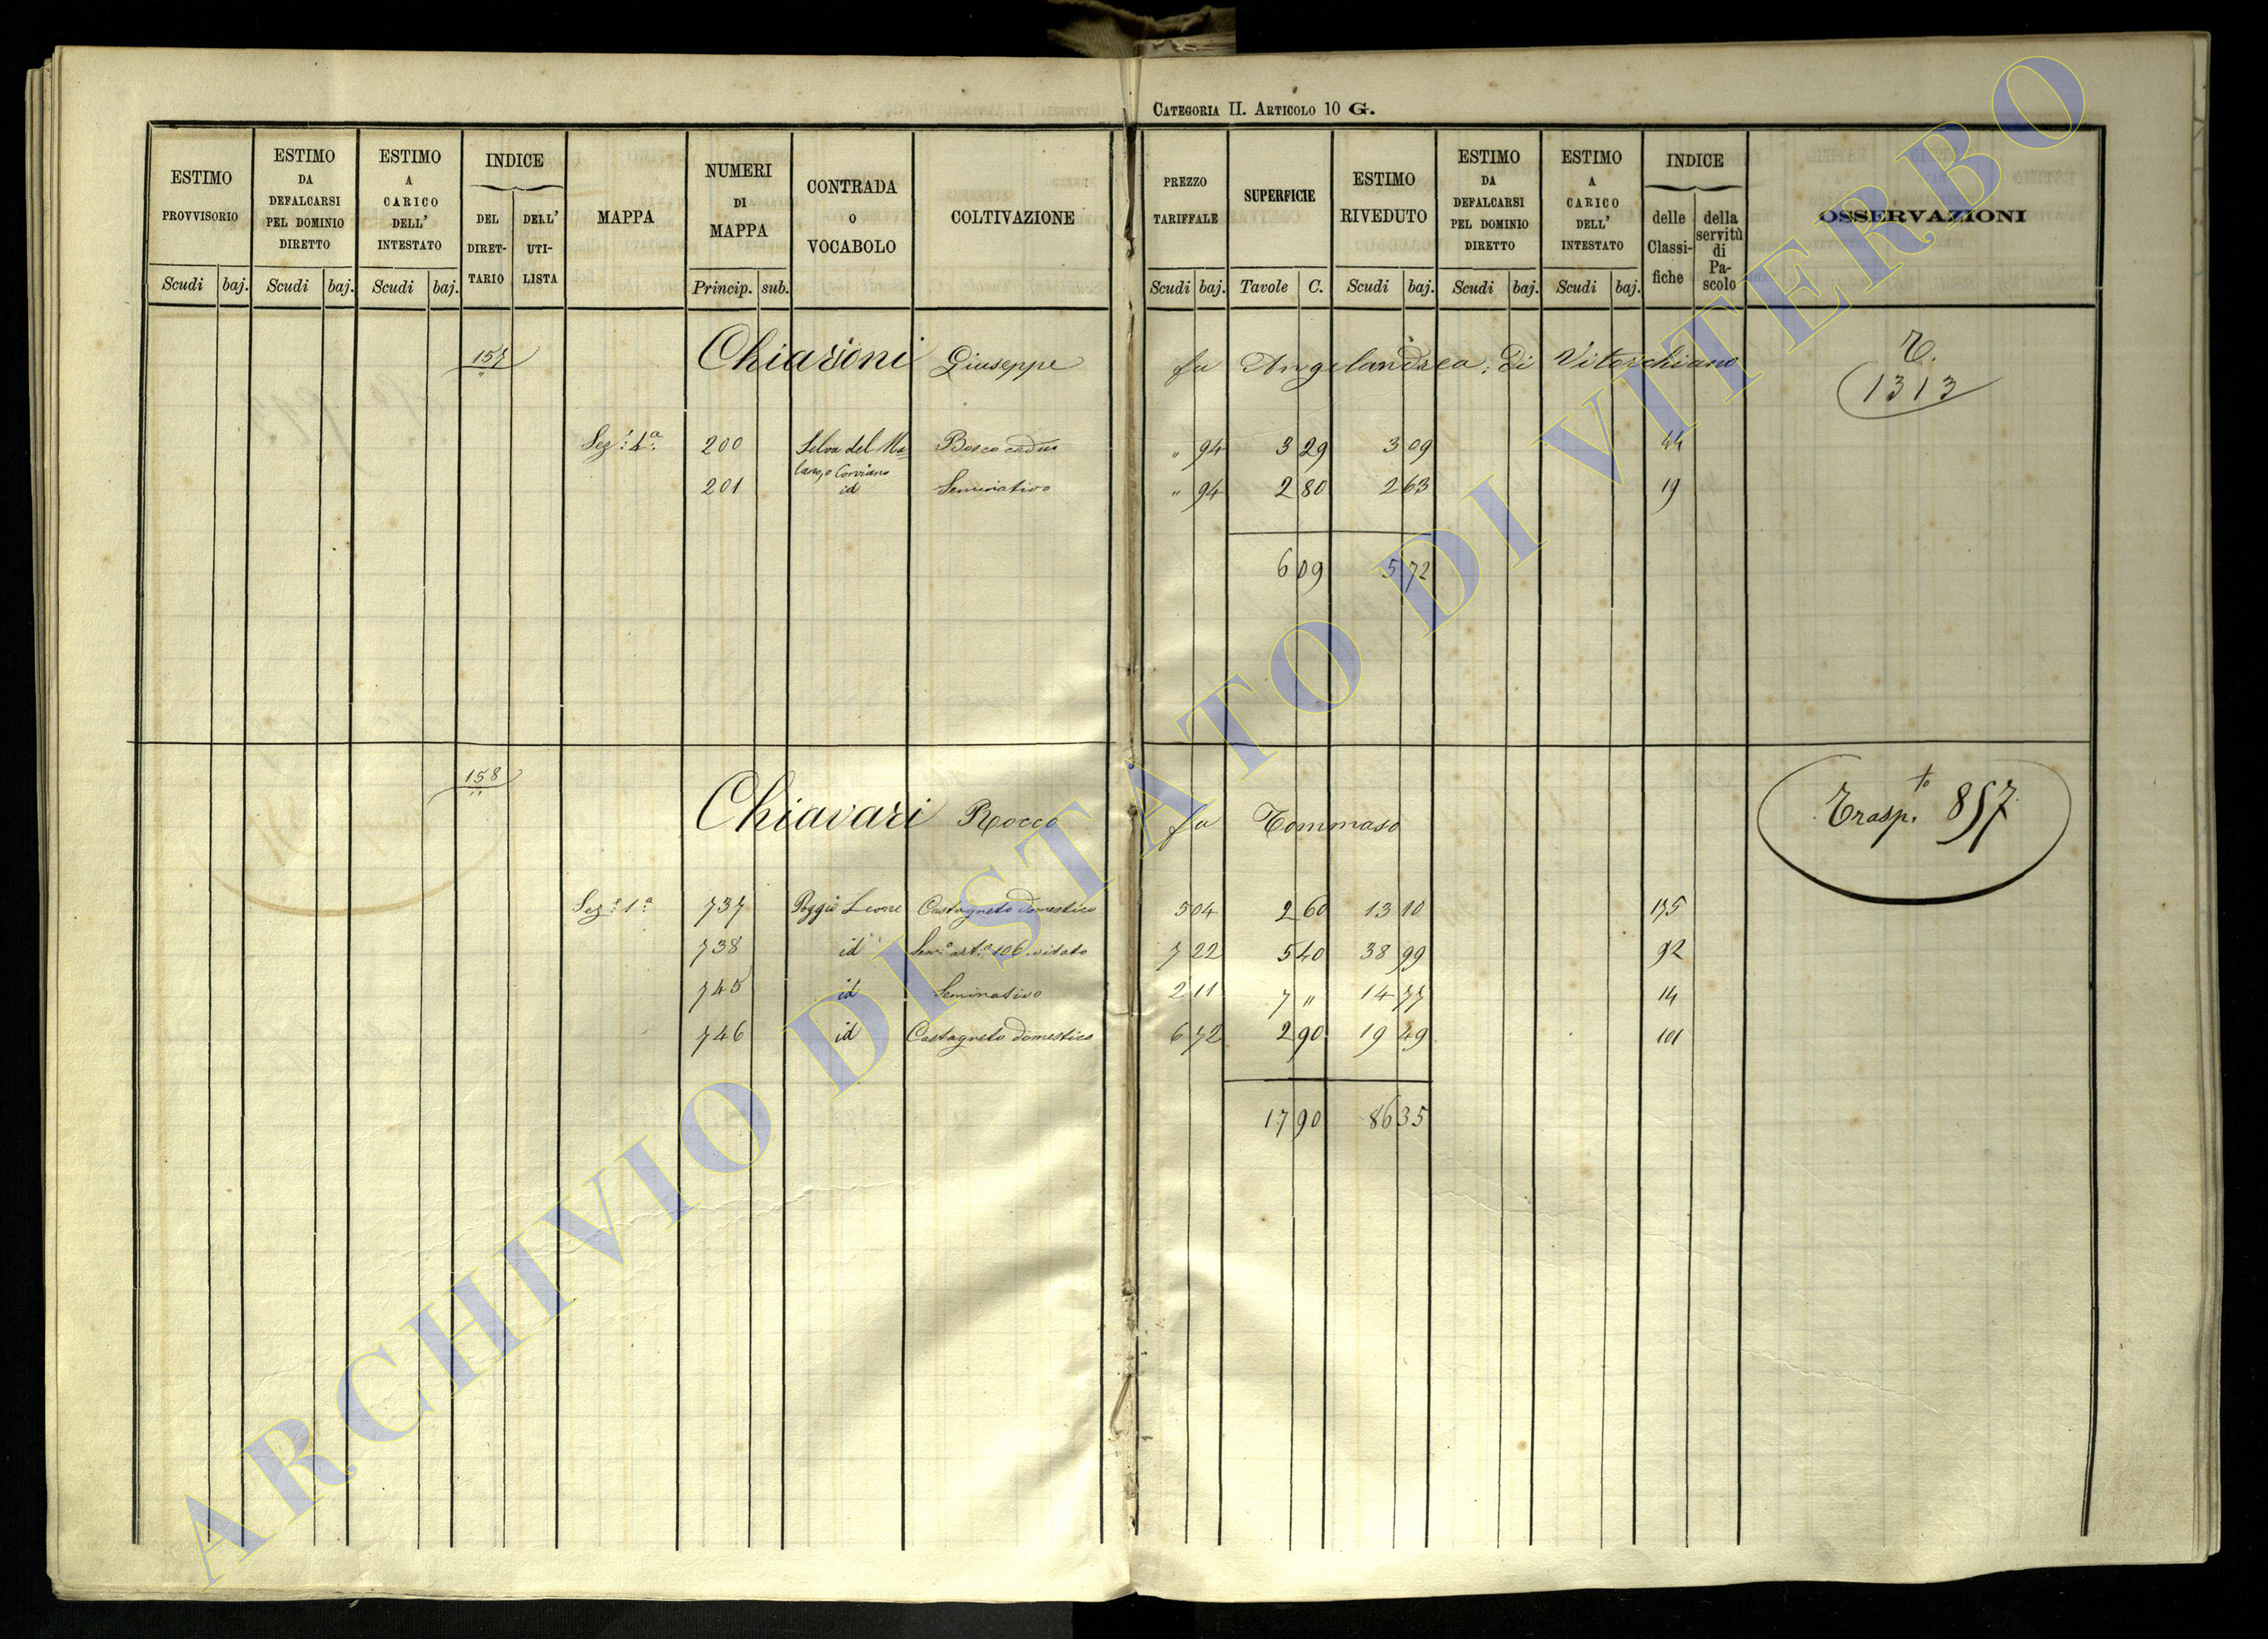 CATEGORIA II. ARTICOLO 10 G.
ESTIMO PROVVISORIO Scudi baj.
ESTIMO DA DEFALCARSI PEL DOMINIO DIRETTO Scudi baj.
ESTIMO A CARICO DELL' INTESTATO Scudi baj.
INDICE DEL DIRET- TARIO DELL' UTI- LISTA
MAPPA
NUMERI DI MAPPA Princip. sub.
CONTRADA O VOCABOLO
COLTIVAZIONE
PREZZO TARIFFALE Scudi baj.
SUPERFICIE Tavole C.
ESTIMO RIVEDUTO Scudi baj.
ESTIMO DA DEFALCARSI PEL DOMINIO DIRETTO Scudi baj.
ESTIMO A CARICO DELL' INTESTATO Scudi baj.
INDICE delle Classi- fiche della servitù di Pa- scolo
OSSERVAZIONI
157 Chiarioni Giuseppe fu Angelandrea, di Vitorchiano
1313
Sez: 4ª 200 Selva del Ma- Bosco ceduo " 94 3 29 3 09 44
lano, o Corviano
201 id Seminativo " 94 2 80 2 63 19
6 09 5 72
158 Chiavari Rocco fu Tommaso Trasp.to 857
Sez: 1ª 737 Poggio Leone Castagneto domestico 5 04 2 60 13 10 175
738 id Sem.o art.o 106 vitato 7 22 5 40 38 99 92
745 id Seminativo 2 11 7 " 14 77 14
746 id Castagneto domestico 6 72 2 90 19 49 101
17 90 86 35
ARCHIVIO DI STATO DI VITERBO